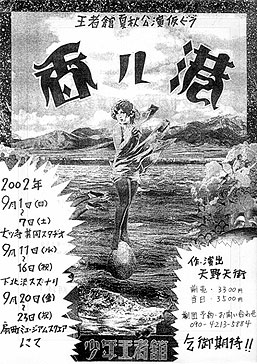 王者館夏秋公演仮ビラ
香ル港
2002年
9月1(日)
〜
7(土)
大ツ寺黄円スタヂオ
9月11(水)
〜16(祝)
下北沢スズナリ
9月20(金)
〜
23(祝)
扇町ミュージアムスクエア
にて
少年王者館
作・演出
天野天街
前売・3300円
当日・3500円
劇団予約・お問い合わせ
090-4213-5884
乞御期待!!